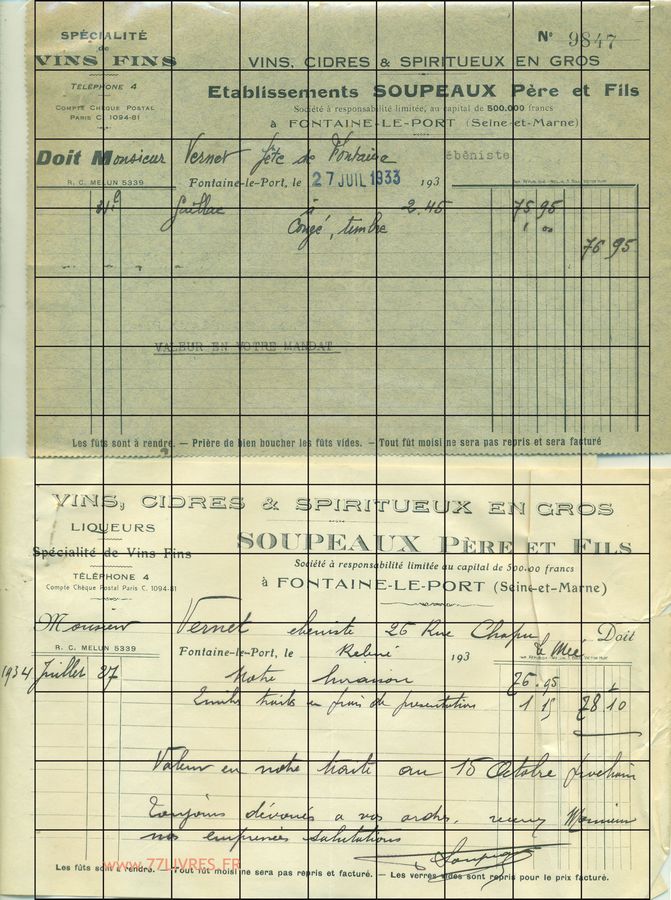 SPÉCIALITÉ
de
VINS FINS
TÉLÉPHONE 4
COMPTE CHÈQUE POSTAL
PARIS C. 1094-81
N° 9847
VINS, CIDRES & SPIRITUEUX EN GROS
Etablissements SOUPEAUX Père et Fils
Société à responsabilité limitée, au capital de 500.000 francs
à FONTAINE-LE-PORT (Seine-et-Marne)
Doit Monsieur Vernet fête de Fontaine ébéniste
R. C. MELUN 5339
Fontaine-le-Port, le 27 JUIL 1933 193
Gaillac à 2.45 75 95
Congé, timbre 1 00
76 95
VALEUR EN VOTRE MANDAT
Les fûts sont à rendre. — Prière de bien boucher les fûts vides. — Tout fût moisi ne sera pas repris et sera facturé
VINS, CIDRES & SPIRITUEUX EN GROS
LIQUEURS
Spécialité de Vins Fins
TÉLÉPHONE 4
Compte Chèque Postal Paris C. 1094-81
SOUPEAUX PÈRE ET FILS
Société à responsabilité limitée au capital de 500.00 francs
à FONTAINE-LE-PORT (Seine-et-Marne)
Monsieur Vernet ebeniste 26 Rue Chapu Doit
Le Mée
R. C. MELUN 5339
Fontaine-le-Port, le 193
1934 Juillet 27 Notre livraison 76.95
traite en frais de presentation 1 15 78 10
Valeur en notre traite au 15 Octobre prochain
Toujours dévoués a vos ordres, recevez Monsieur
nos empressées salutations
Soupeaux
Les fûts sont à rendre. — Tout fût moisi ne sera pas repris et facturé. — Les verres vides sont repris pour le prix facturé.
www.77LIVRES.FR